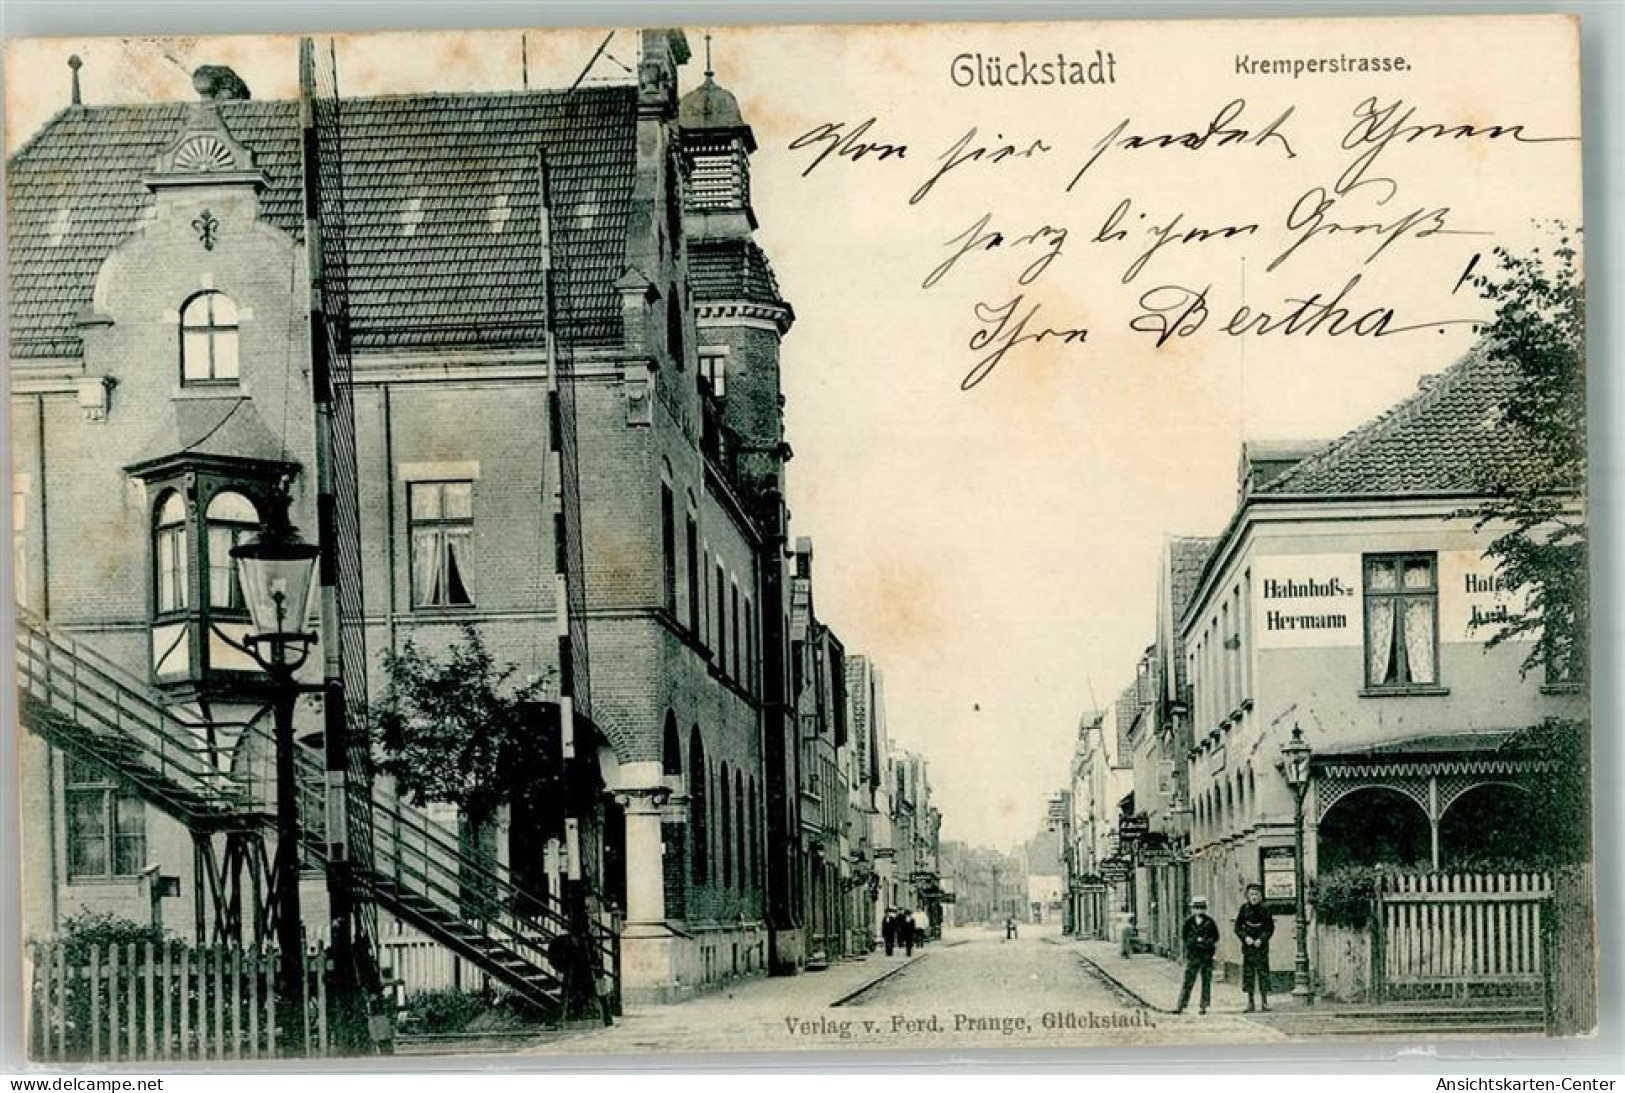 Glückstadt Kremperstrasse.
Von hier sendet Ihnen
herzlichen Gruß
Ihre Bertha!
Bahnhofs=
Hermann
Verlag v. Ferd. Prange, Glückstadt.
www.delcampe.net
Ansichtskarten-Center